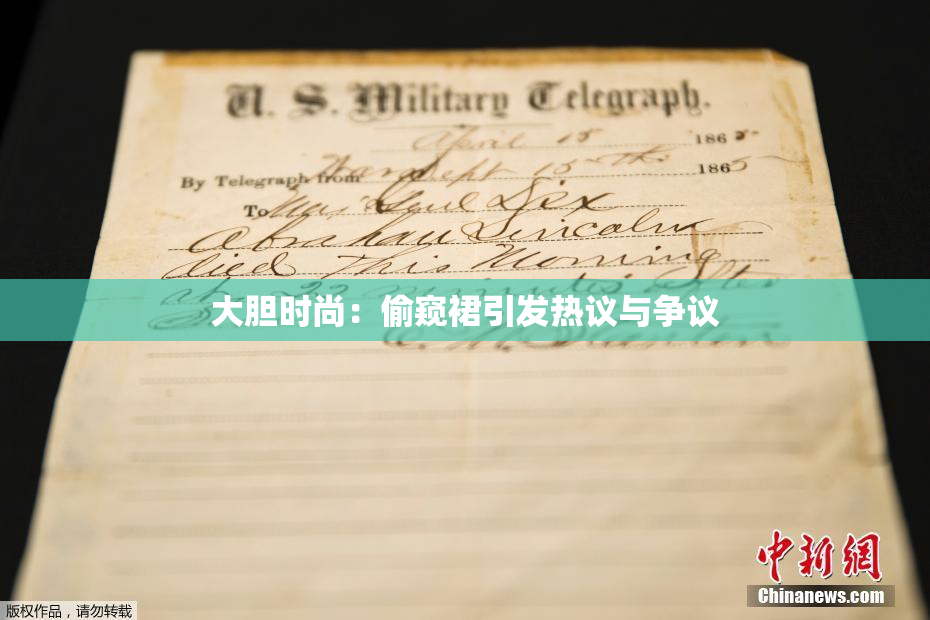 U. S. Military Telegraph.
April 15 1865
By Telegraph from War Dept 15th 1865
To Maj Genl Dix
Abraham Lincoln
died This Morning
at 22 minutes after
大胆时尚：偷窥裙引发热议与争议
E. M. Stanton
中新网
Chinanews.com
版权作品，请勿转载